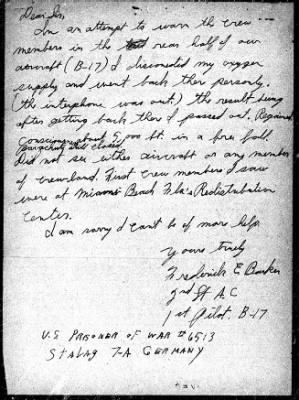 Dear Sir,
In an attempt to warn the crew
members in the rear half of our
aircraft (B-17) I disconected my oxygen
supply and went back there personly.
(the interphone was out) the result being
after getting back there I passed out. Regained
Consciousness about 5,000 ft. in a free fall
still closed
Did not see either aircraft or any member
of crew land. First crew members I saw
were at Miami Beach Fla's Redistribution
Center.
I am sorry I cant be of more help.
Yours truly
Frederick E.
2nd Lt A.C
1st Pilot. B-17
U.S PRISONER OF WAR # 6513
STALAG 7-A GERMANY